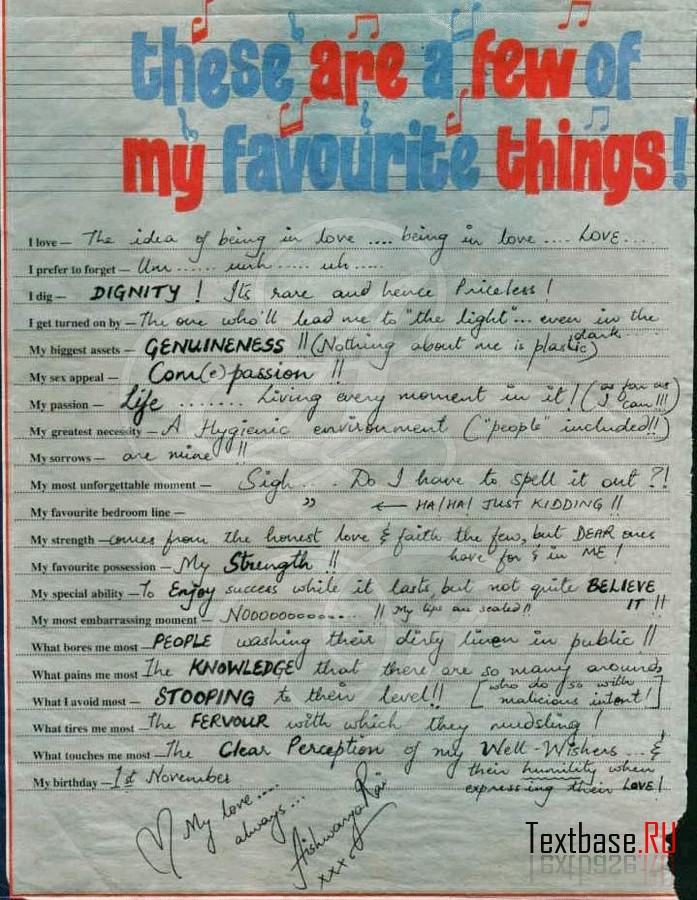 these are a few of
my favourite things!
I love – The idea of being in love .... being in love .... LOVE ....
I prefer to forget – Um ...... umh ..... uh .....
I dig – DIGNITY ! Its rare and hence Priceless !
I get turned on by – The one who'll lead me to "the light"... even in the dark...
My biggest assets – GENUINENESS !! (Nothing about me is plastic)
My sex appeal – Com(e)passion !!
My passion – Life ........ Living every moment in it ! (as far as I can!!!)
My greatest necessity – A Hygienic environment ("people" included!!)
My sorrows – are mine !!
My most unforgettable moment – Sigh .... Do I have to spell it out ?!
My favourite bedroom line – " ← HA! HA! JUST KIDDING !!
My strength – comes from the honest love & faith the few, but DEAR ones
have for & in ME !
My favourite possession – My Strength !!
My special ability – To Enjoy success while it lasts, but not quite BELIEVE
IT !!
My most embarrassing moment – NOooooooooo.... !! My lips are sealed !!
What bores me most – PEOPLE washing their dirty linen in public !!
What pains me most – The KNOWLEDGE that there are so many around
[who do so with
malicious intent!]
What I avoid most – STOOPING to their level !!
What tires me most – The FERVOUR with which they mudsling !
What touches me most – The Clear Perception of my Well-Wishers ... &
their humility when
expressing their LOVE !
My birthday – 1st November
My love ....
always ...
Aishwarya Rai
xxx
Textbase.RU